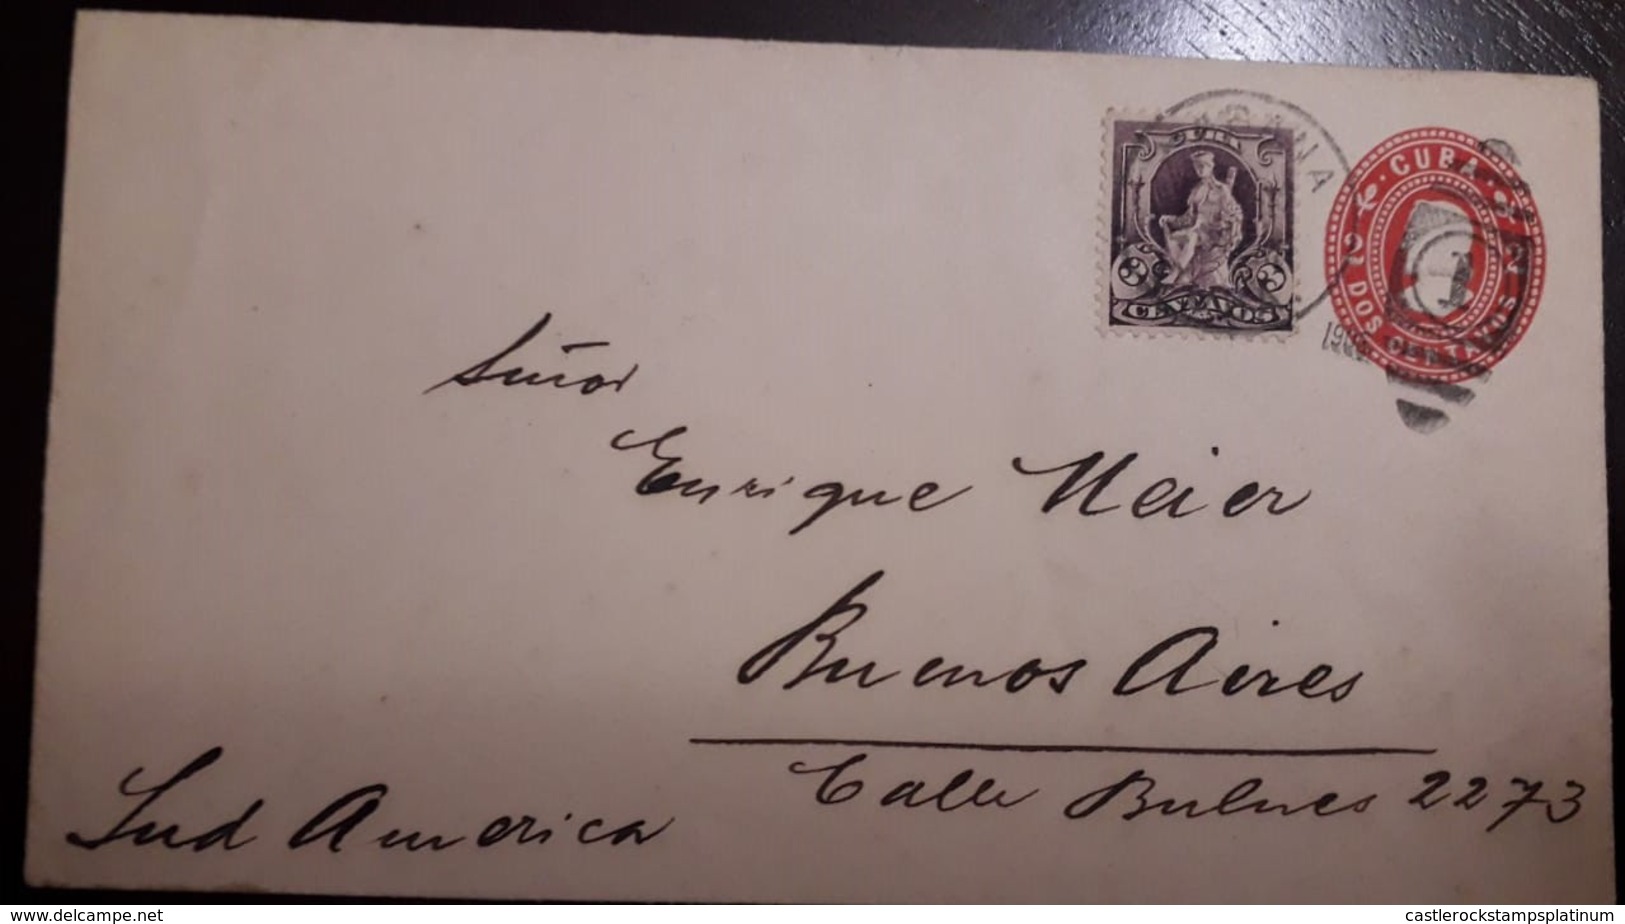 CUBA
HABANA
CUBA
2 2
3 3
CENTAVOS
DOS CENTAVOS
1
Señor
Enrique Meier
Buenos Aires
Calle Bulnes 2273
Sud America
www.delcampe.net
castlerockstampsplatinum